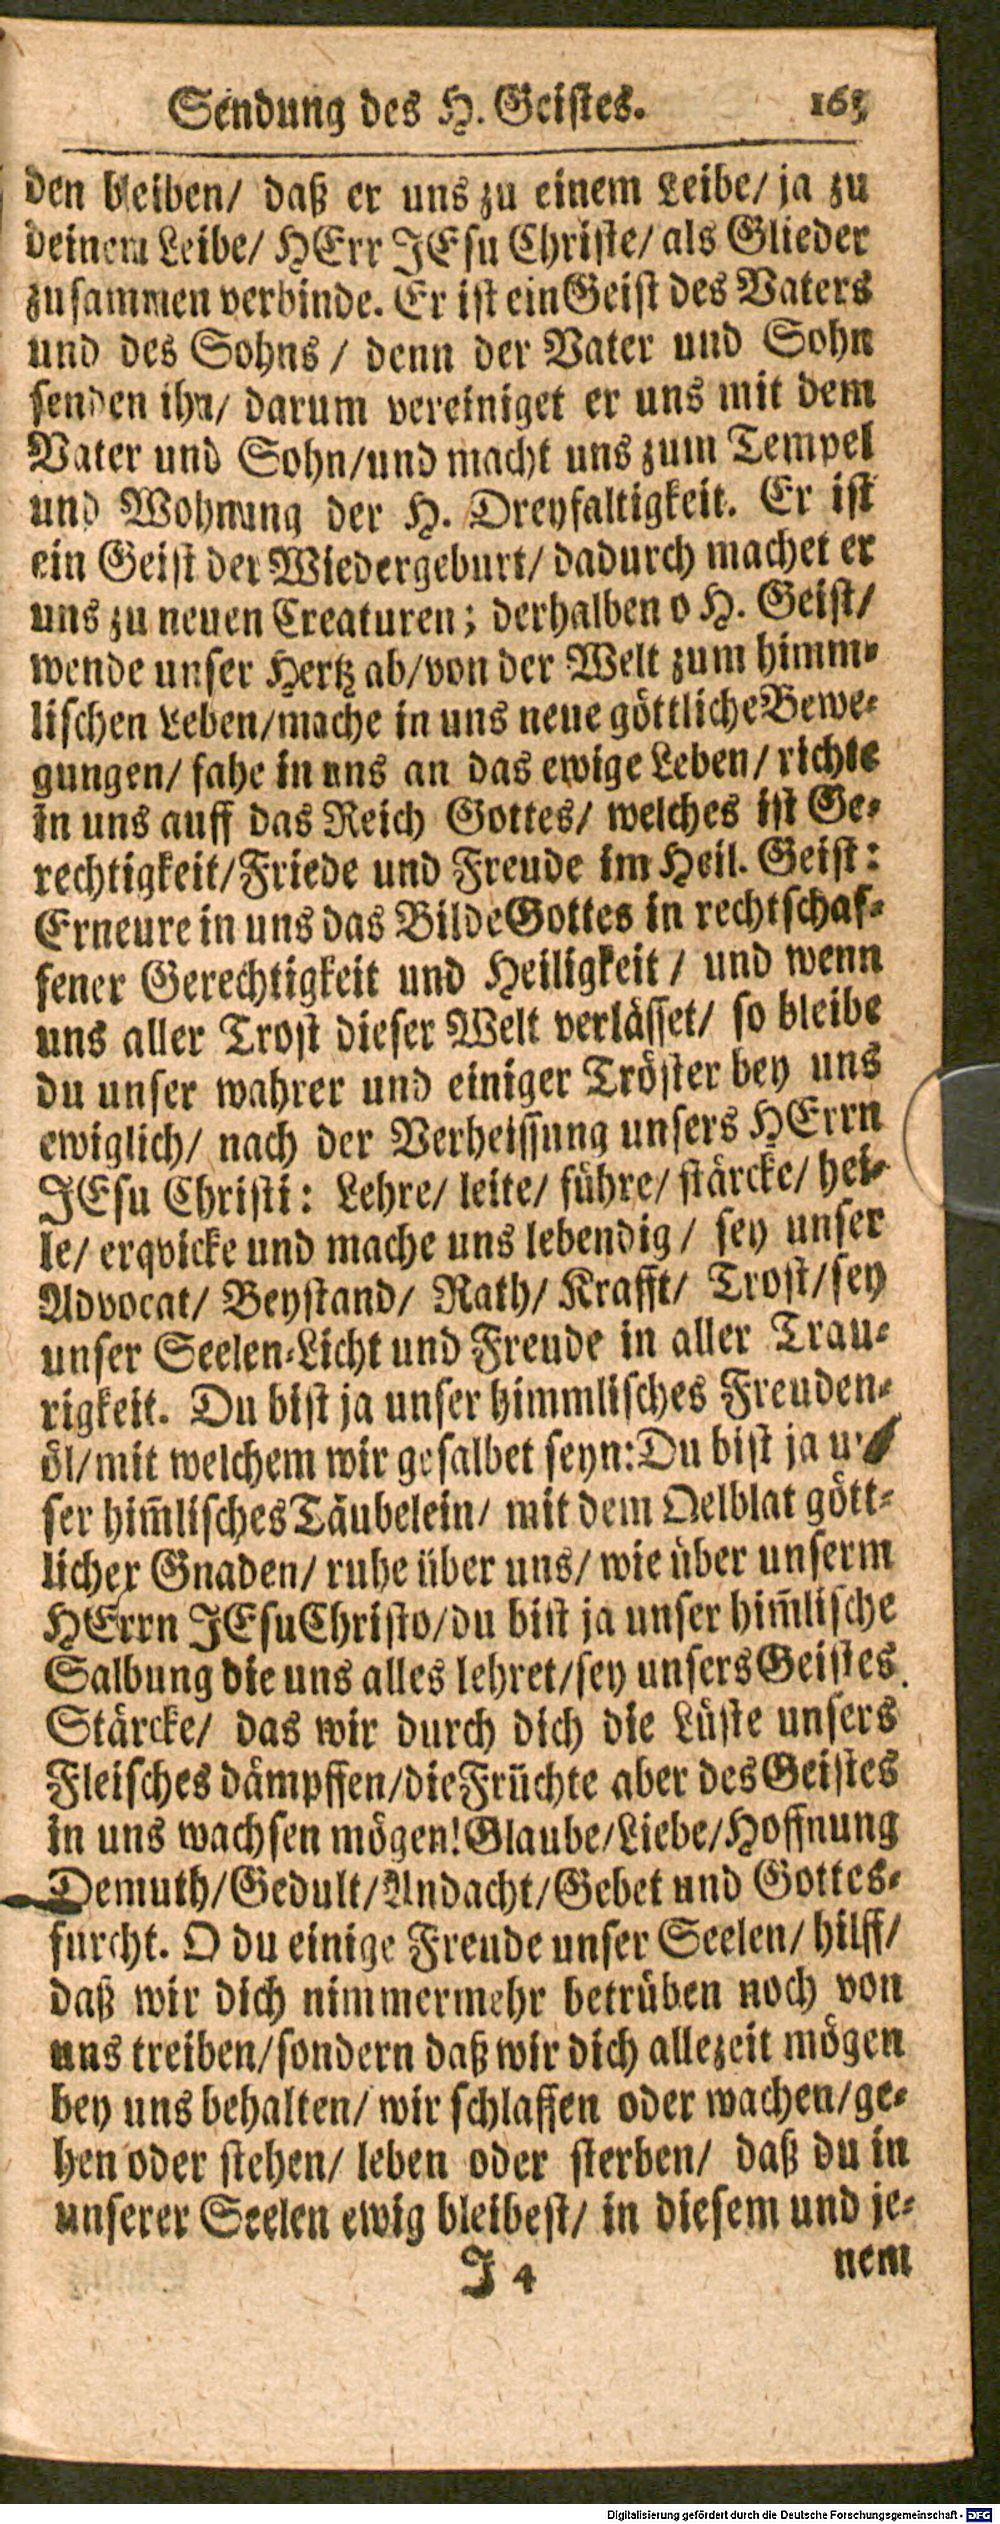 Sendung des H. Geistes. 165
den bleiben/ daß er uns zu einem Leibe/ ja zu
deinem Leibe/ HErr JEsu Christe/ als Glieder
zusammen verbinde. Er ist ein Geist des Vaters
und des Sohns / denn der Vater und Sohn
senden ihn/ darum vereiniget er uns mit dem
Vater und Sohn/und macht uns zum Tempel
und Wohnung der H. Dreyfaltigkeit. Er ist
ein Geist der Wiedergeburt/ dadurch machet er
uns zu neuen Creaturen; derhalben o H. Geist/
wende unser Hertz ab/von der Welt zum himm-
lischen Leben/mache in uns neue göttliche Bewe-
gungen/ fahe in uns an das ewige Leben/ richte
in uns auff das Reich Gottes/ welches ist Ge-
rechtigkeit/Friede und Freude im Heil. Geist:
Erneure in uns das Bilde Gottes in rechtschaf-
fener Gerechtigkeit und Heiligkeit / und wenn
uns aller Trost dieser Welt verlässet/ so bleibe
du unser wahrer und einiger Tröster bey uns
ewiglich/ nach der Verheissung unsers HErrn
JEsu Christi: Lehre/ leite/ führe/ stärcke/ hei-
le/ erqvicke und mache uns lebendig / sey unser
Advocat/ Beystand/ Rath/ Krafft/ Trost/sey
unser Seelen-Licht und Freude in aller Trau-
rigkeit. Du bist ja unser himmlisches Freuden-
öl/mit welchem wir gesalbet seyn: Du bist ja un-
ser him̃lisches Täubelein/ mit dem Oelblat gött-
licher Gnaden/ ruhe über uns/ wie über unserm
HErrn JEsu Christo/du bist ja unser him̃lische
Salbung die uns alles lehret/sey unsers Geistes
Stärcke/ das wir durch dich die Lüste unsers
Fleisches dämpffen/die Früchte aber des Geistes
in uns wachsen mögen! Glaube/Liebe/Hoffnung
Demuth/Gedult/Andacht/Gebet und Gottes-
furcht. O du einige Freude unser Seelen/ hilff/
daß wir dich nimmermehr betrüben noch von
uns treiben/sondern daß wir dich allezeit mögen
bey uns behalten/ wir schlaffen oder wachen/ge-
hen oder stehen/ leben oder sterben/ daß du in
unserer Seelen ewig bleibest/ in diesem und je-
J 4 nem
Digitalisierung gefördert durch die Deutsche Forschungsgemeinschaft - DFG